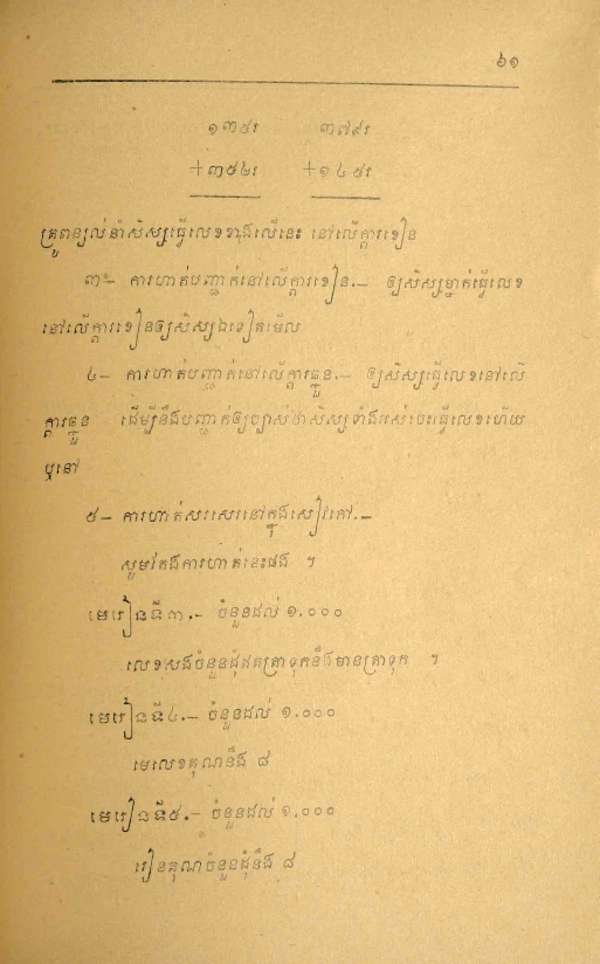 ៦១
១៣៥រ ៣៧៩រ
+៣៥៤រ +១៤៥រ
គ្រូពន្យល់នាំសិស្សធ្វើលេខខាងលើនេះ នៅលើក្តារខៀន
៣- ការហាត់បញ្ជាក់នៅលើក្តារខៀន.– ឲ្យសិស្សម្នាក់ធ្វើលេខ
នៅលើក្តារខៀនឲ្យសិស្សឯទៀតមើល
៤- ការហាត់បញ្ជាក់នៅលើក្តារឆ្នួន.– ឲ្យសិស្សធ្វើលេខនៅលើ
ក្តារឆ្នួន ដើម្បីនឹងបញ្ជាក់ឲ្យច្បាស់ថាសិស្សទាំងអស់ចេះធ្វើលេខហើយ
ឬនៅ
៥- ការហាត់សរសេរនៅក្នុងសៀវភៅ.–
សូមតែងការហាត់ខ្លះផង ។
មេរៀនទី៣.– ចំនួនដល់ ១.០០០
លេខសងចំនួនដុំឥតត្រាទុកនឹងមានត្រាទុក ។
មេរៀនទី៤.– ចំនួនដល់ ១.០០០
មេលេខគុណនឹង ៨
មេរៀនទី៥.– ចំនួនដល់ ១.០០០
រៀនគុណចំនួនដុំនឹង ៨